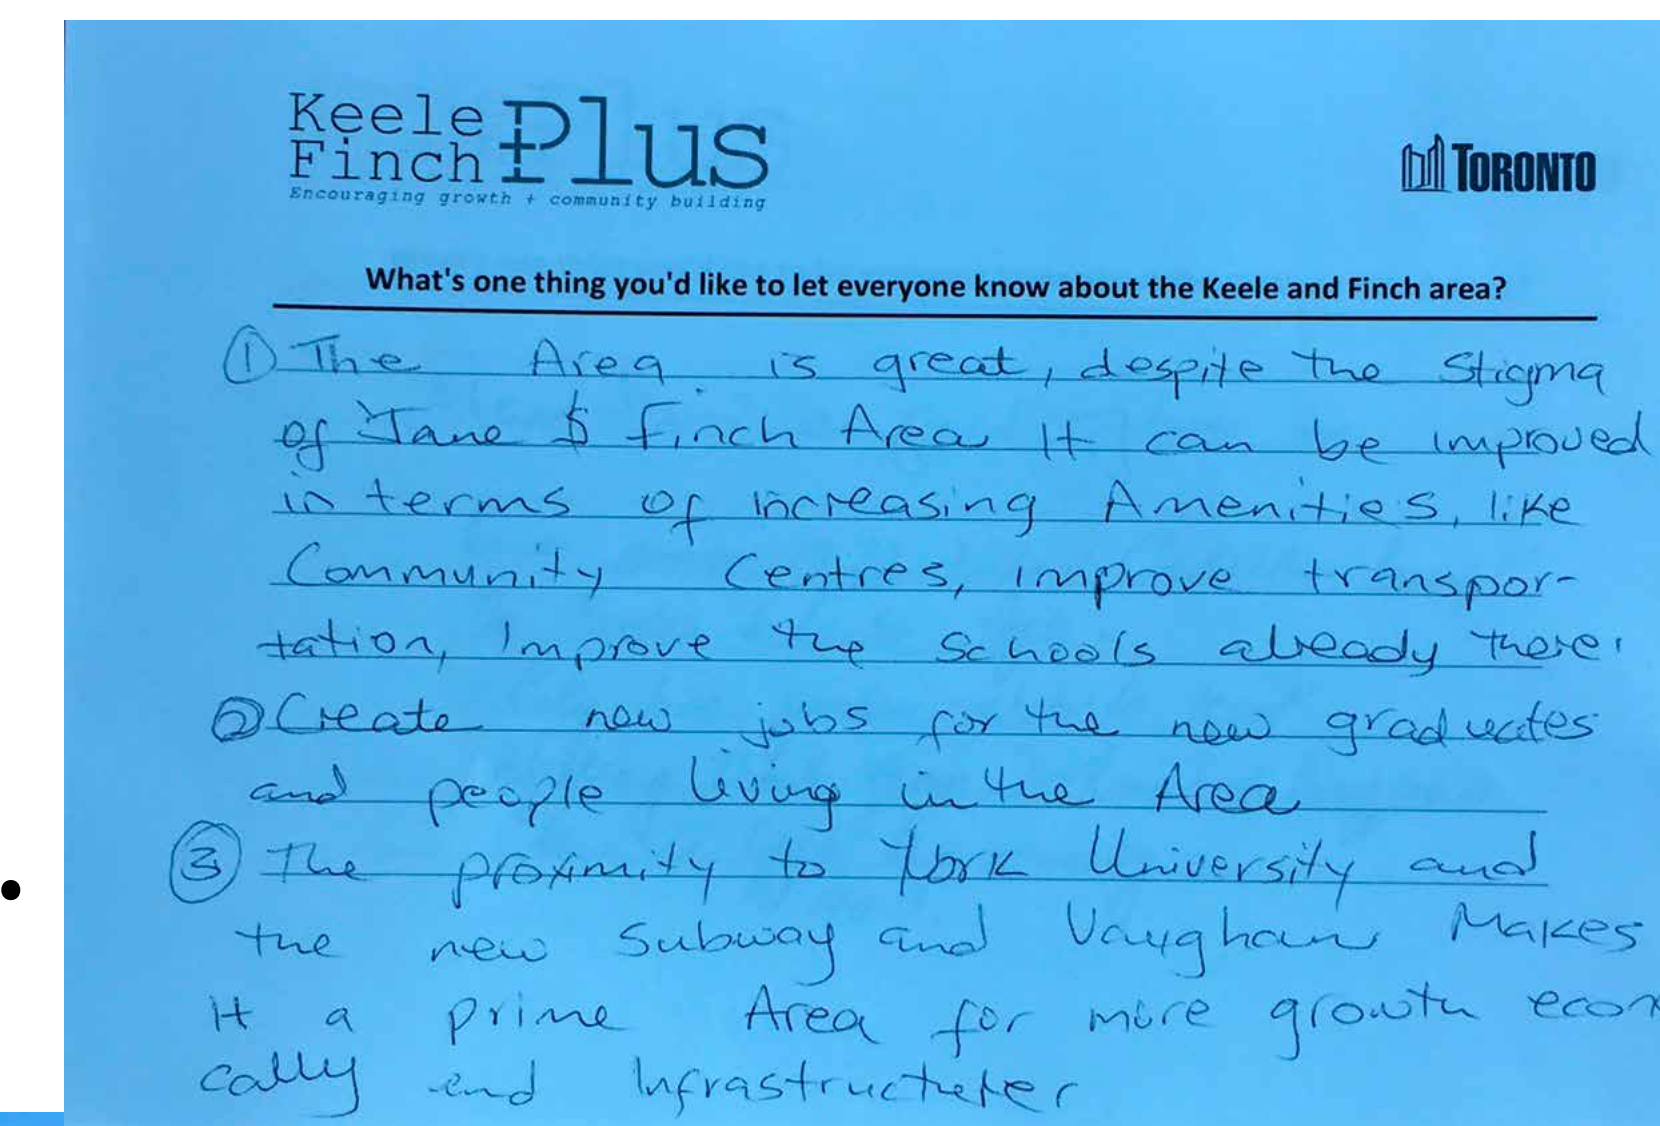 Keele
Finch Plus
Encouraging growth + community building
TORONTO
What's one thing you'd like to let everyone know about the Keele and Finch area?
① The Area is great, despite the Stigma
of Jane & Finch Area It can be improved
in terms of increasing Amenities, like
Community Centres, improve transpor-
tation, Improve the Schools already there.
② Create new jobs for the new graduates
and people living in the Area
③ The proximity to York University and
the new Subway and Vaughan Makes
It a prime Area for more growth econ
cally and